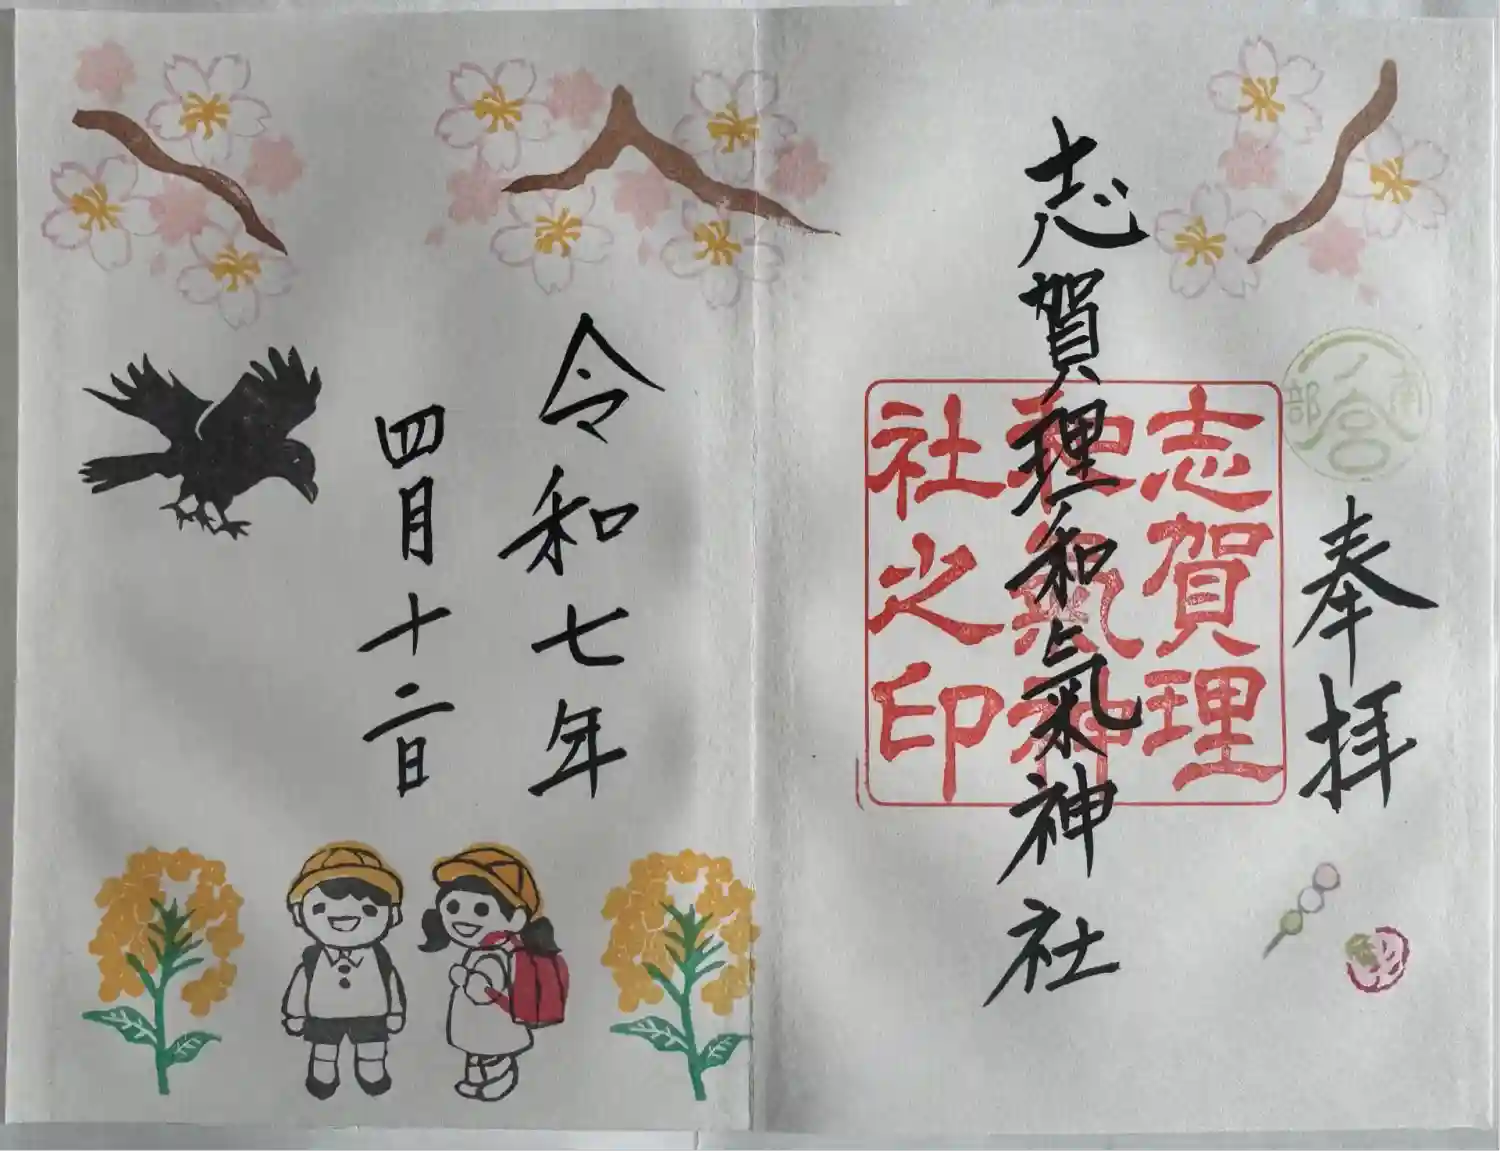 奉拝
志賀理和氣神社
志賀理
和氣神
社之印
南部
一ノ宮
令和七年
四月十二日